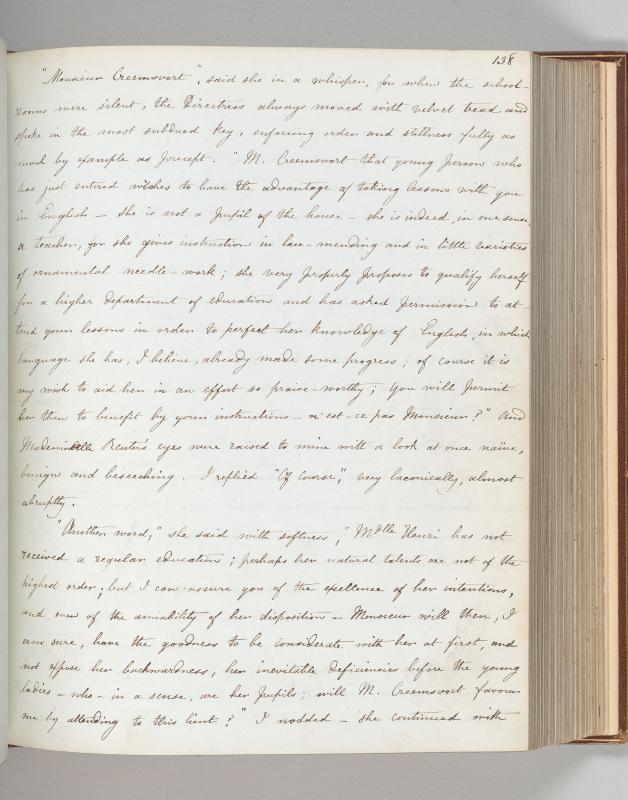 138
"Monsieur Creemsvort", said she in a whisper, for when the school-
rooms were silent, the Directress always moved with velvet tread and
spoke in the most subdued key, enforcing order and stillness fully as
much by example as precept. "M. Creemsvort that young person who
has just entered wishes to have the advantage of taking lessons with you
in English — she is not a pupil of the house — she is indeed, in one sense,
a teacher, for she gives instruction in lace-mending and in little varieties
of ornamental needle-work; she very properly proposes to qualify herself
for a higher department of education and has asked permission to at-
tend your lessons in order to perfect her knowledge of English, in which
language she has, I believe, already made some progress; of course it is
my wish to aid her in an effort so praise-worthy; you will permit
her then to benefit by your instructions — n'est-ce pas Monsieur?" And
Mademoiselle Reuter's eyes were raised to mine with a look at once naïve,
benign and beseeching. I replied "Of course", very laconically, almost
abruptly.
"Another word," she said with softness, "Mdlle Henri has not
received a regular education; perhaps her natural talents are not of the
highest order; but I can assure you of the excellence of her intentions,
and even of the amiability of her disposition — Monsieur will then, I
am sure, have the goodness to be considerate with her at first, and
not expose her backwardness, her inevitable deficiencies before the young
ladies — who — in a sense, are her pupils; will M. Creemsvort favour
me by attending to this hint?" I nodded — she continued with